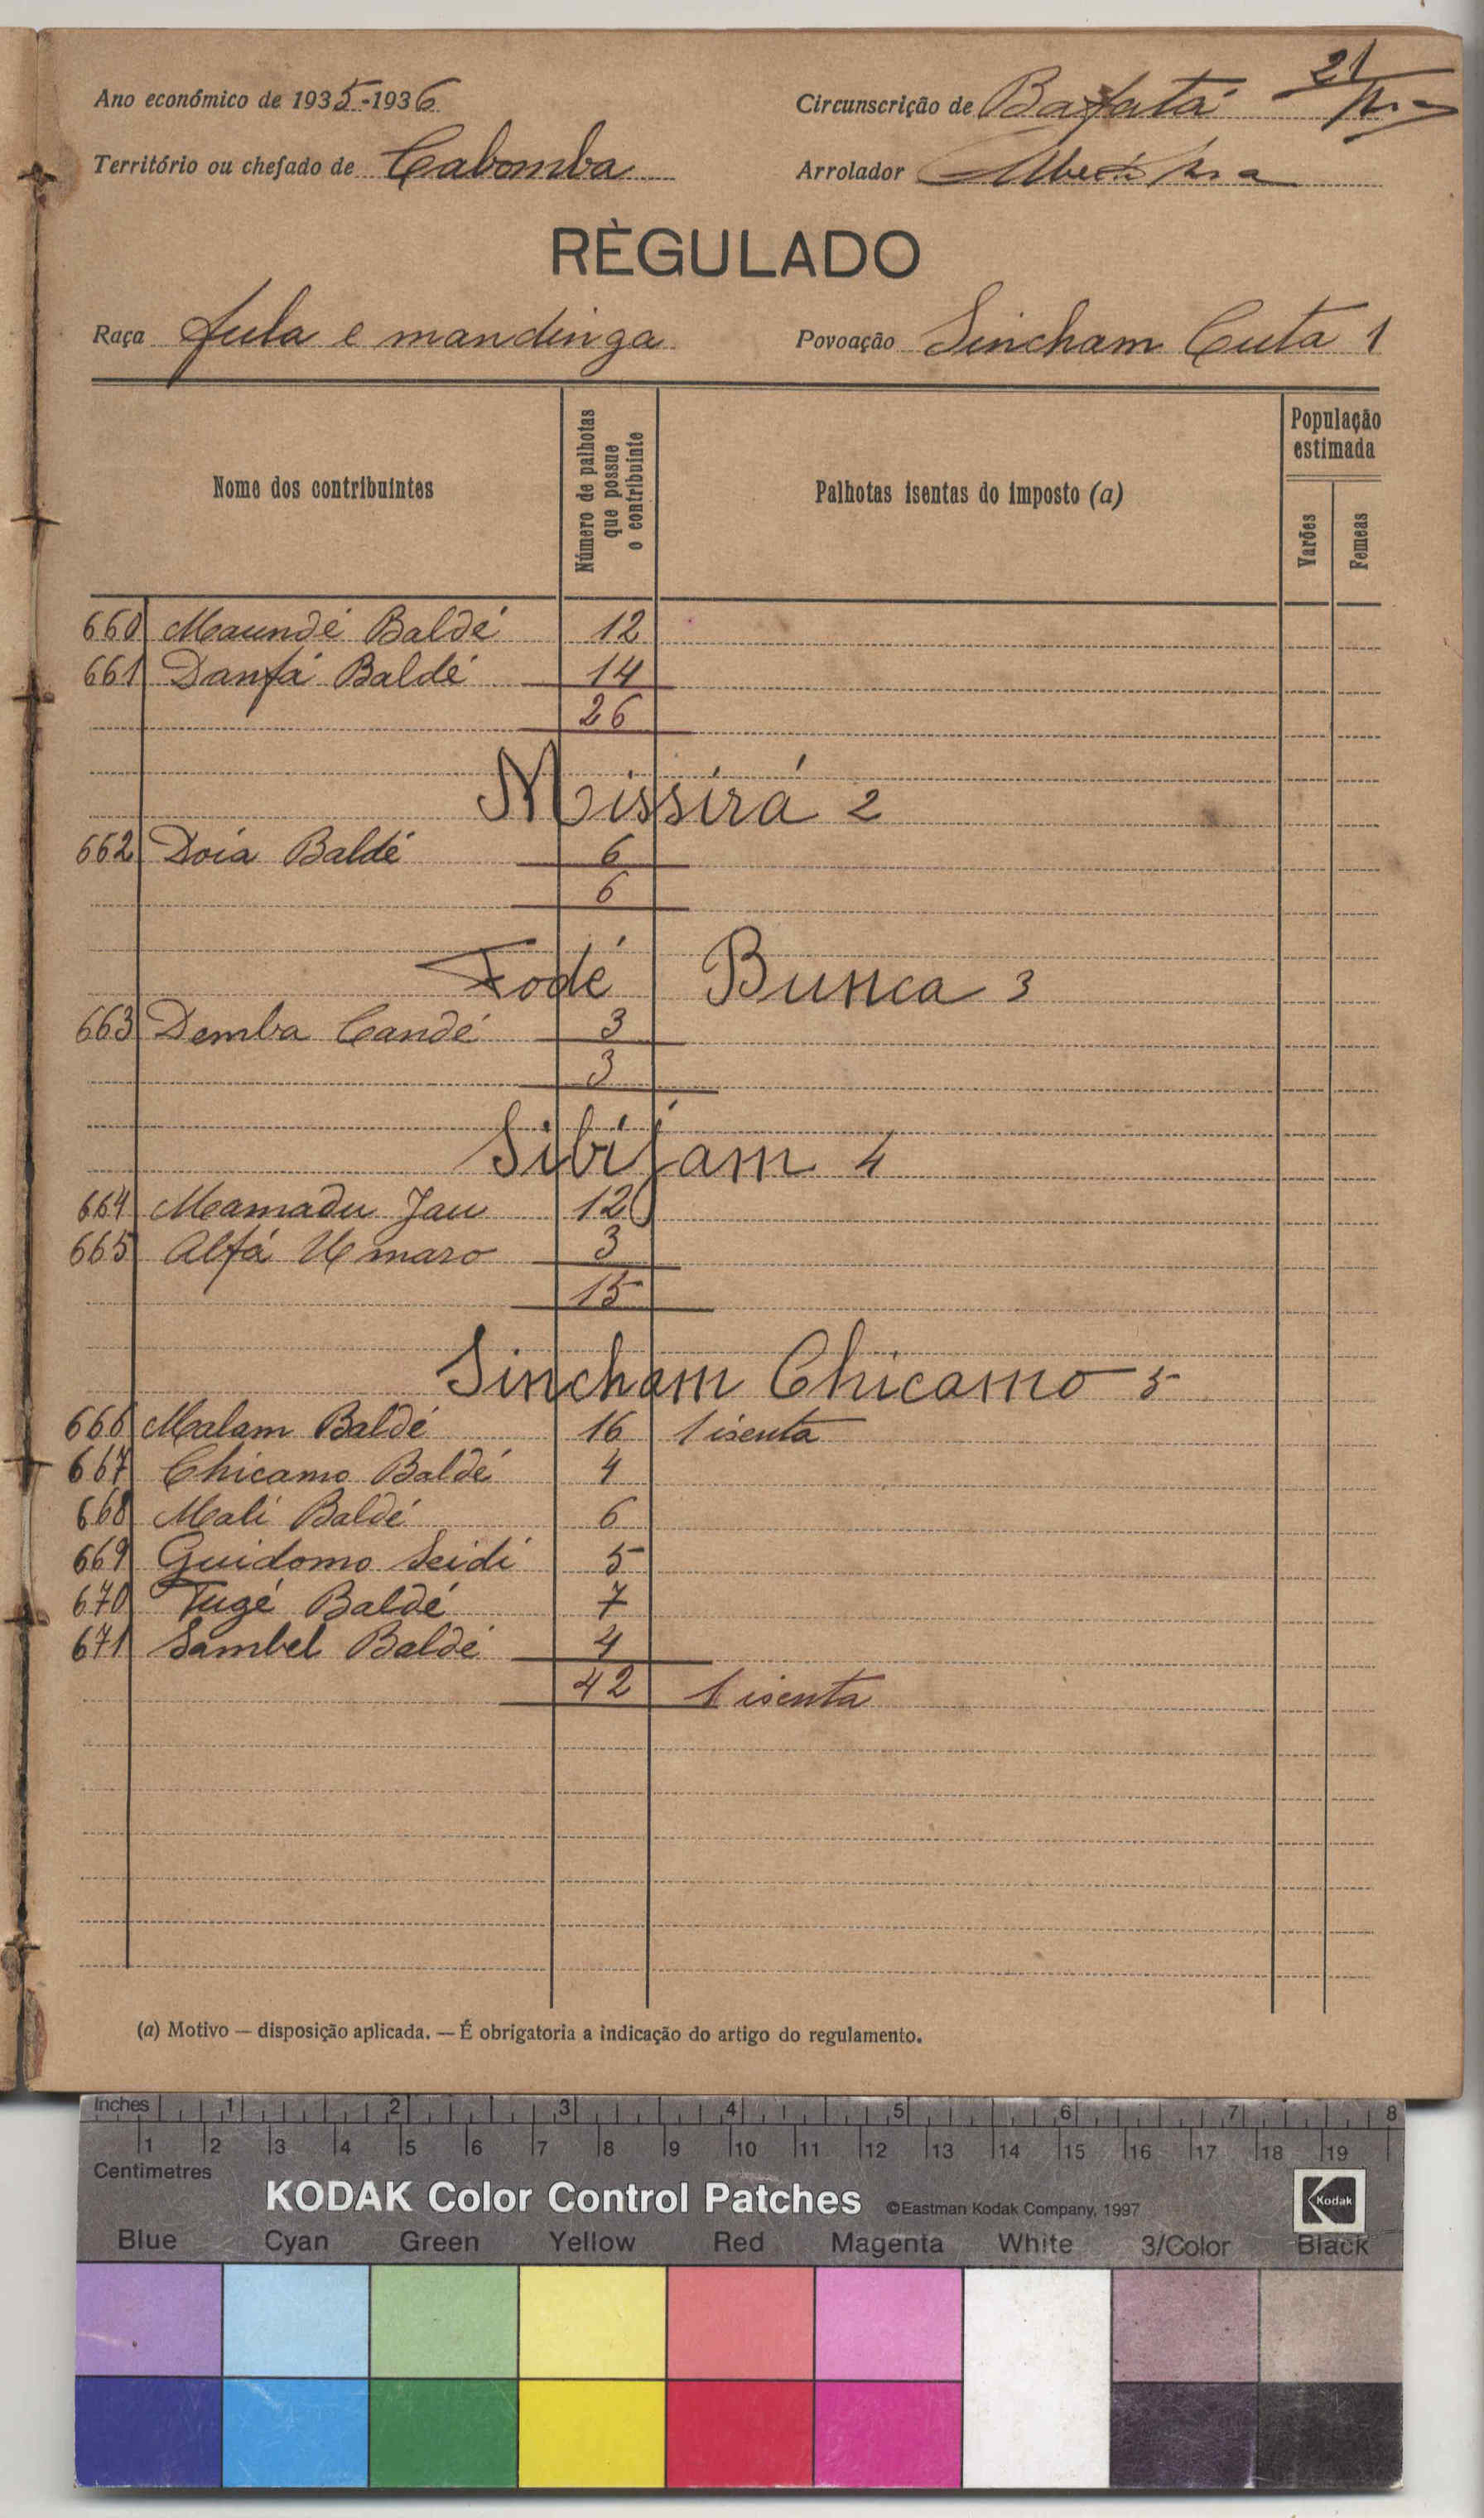 Ano económico de 1935-1936 Circunscrição de Bafatá 21
Território ou chefado de Cabomba Arrolador
RÈGULADO
Raça fula e mandinga Povoação Sincham Cuta 1
Nome dos contribuintes
Número de palhotas que possue o contribuinte
Palhotas isentas do imposto (a)
População estimada
Varões
Femeas
660 Maundé Baldé 12
661 Danfá Baldé 14
26
Missirá 2
662 Doia Baldé 6
6
Fodé Bunca 3
663 Demba Candé 3
3
Sibijam 4
664 Mamadu Jau 12
665 Alfá Umaro 3
15
Sincham Chicamo 5
666 Malam Baldé 16 1 isenta
667 Chicamo Baldé 4
668 Mali Baldé 6
669 Guidomo Seidi 5
670 Tugé Baldé 7
671 Sambel Baldé 4
42 1 isenta
(a) Motivo — disposição aplicada. — É obrigatoria a indicação do artigo do regulamento.
Inches 1 2 3 4 5 6 7 8
1 2 3 4 5 6 7 8 9 10 11 12 13 14 15 16 17 18 19
Centimetres
KODAK Color Control Patches ©Eastman Kodak Company, 1997 Kodak
Blue Cyan Green Yellow Red Magenta White 3/Color Black